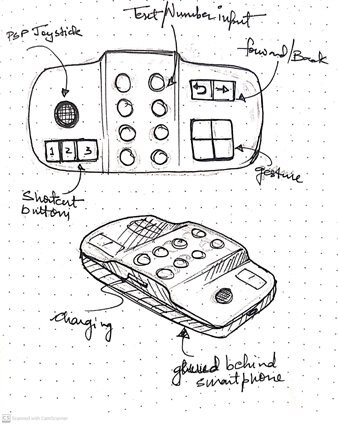 Text/Number input
PSP Joystick
forward/Back
1 2 3
Shortcut
button
gesture
charging
glued behind
smartphone
CS Scanned with CamScanner